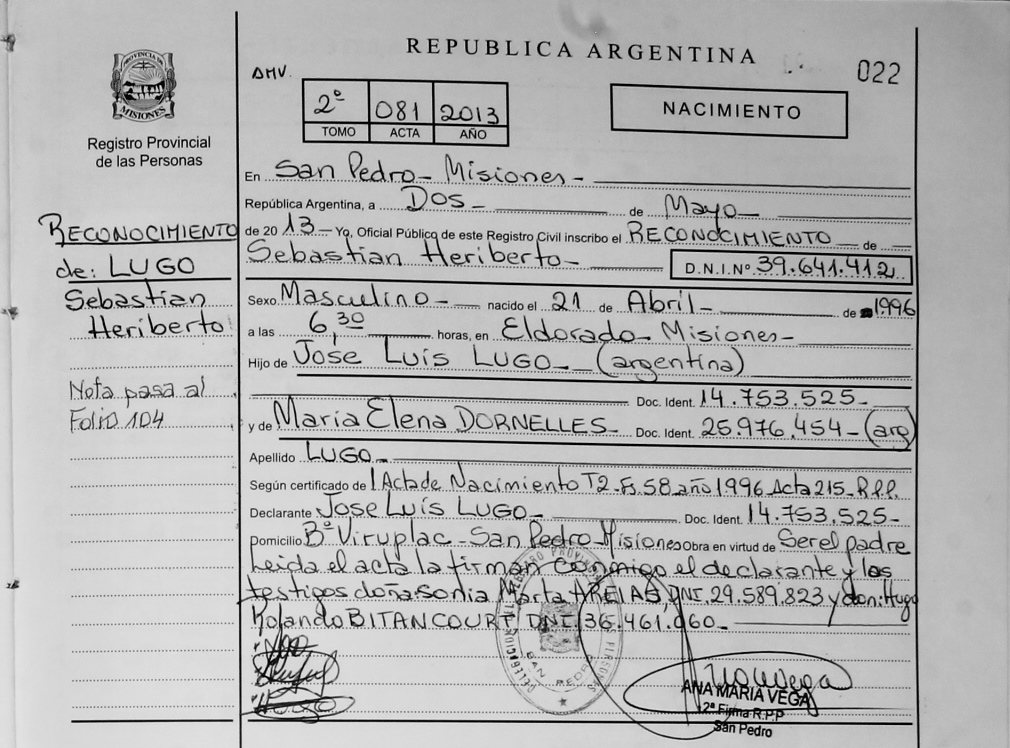 REPUBLICA ARGENTINA
022
DMV.
2º 081 2013
TOMO ACTA AÑO
NACIMIENTO
PROVINCIA DE
MISIONES
Registro Provincial
de las Personas
RECONOCIMIENTO
de: LUGO
Sebastian
Heriberto
Nota pasa al
Folio 104
En San Pedro - Misiones -
República Argentina, a DOS - de Mayo -
de 2013 - Yo, Oficial Público de este Registro Civil inscribo el RECONOCIMIENTO de
Sebastian Heriberto - D.N.I.Nº 39.641.412
Sexo Masculino - nacido el 21 de Abril - de 1996
a las 6,30 horas, en Eldorado - Misiones -
Hijo de José Luís LUGO - (argentina)
Doc. Ident. 14.753.525 -
y de María Elena DORNELLES - Doc. Ident. 25.976.454 - (arg)
Apellido LUGO -
Según certificado de Acta de Nacimiento T2 - Fs. 58 año 1996 Acta 215 - R.P.P.
Declarante Jose Luís LUGO - Doc. Ident. 14.753.525 -
Domicilio Bº Viruplac - San Pedro - Misiones Obra en virtud de Ser el padre
Leida el acta la firman conmigo el declarante y los
testigos doña Sonia Marta AREIAS, DNI. 29.589.823 y don: Hugo
Rolando BITANCOURT DNI. 36.461.060 -
SAN PEDRO
ANA MARIA VEGA
2ª Firma R.P.P
San Pedro